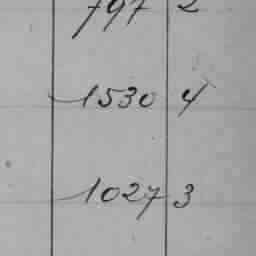 797 2
1530 4
1027 3